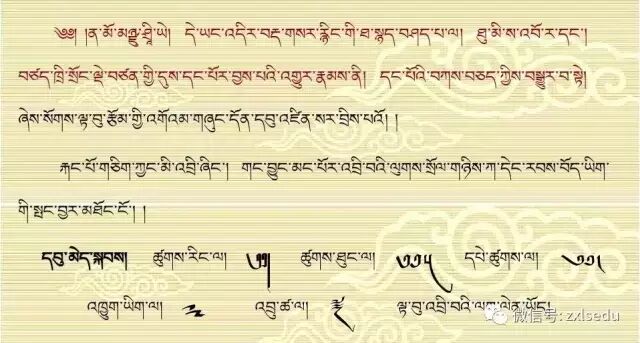 ༄༅། །ན་མོ་མཉྫུ་ཤྲཱི་ཡེ། དེ་ཡང་འདིར་བརྡ་གསར་རྙིང་གི་ཐ་སྙད་བཤད་པ་ལ། ཐུ་མི་ས་འབོ་ར་དང་།
བཙད་ཁྲི་སྲོང་ལྡེ་བཙན་གྱི་དུས་དང་པོར་བྱས་པའི་འགྱུར་རྣམས་ནི། དང་པོའི་བཀས་བཅད་ཀྱིས་བསྒྱུར་བ་སྟེ།
ཞེས་སོགས་ལྟ་བུ་རྩོམ་གྱི་འགོའམ་གཞུང་དོན་དབུ་འཛིན་སར་བྲིས་པའོ། །
རྐང་པོ་གཅིག་ཀྱང་མི་འབྲི་ཞིང་། གང་བྱུང་མང་པོར་འབྲི་བའི་ལུགས་སྲོལ་གཉིས་ཀ་དེང་རབས་བོད་ཡིག་
གི་སྤང་བྱར་མཐོང་ངོ་། །
དབུ་མེད་སྐབས། ཚུགས་རིང་ལ། ཚུགས་ཐུང་ལ། དཔེ་ཚུགས་ལ།
འཁྱུག་ཡིག་ལ། འབྲུ་ཚ་ལ། ལྟ་བུ་འབྲི་བའི་ལག་ལེན་ཡོད།
微信号: zxlsedu